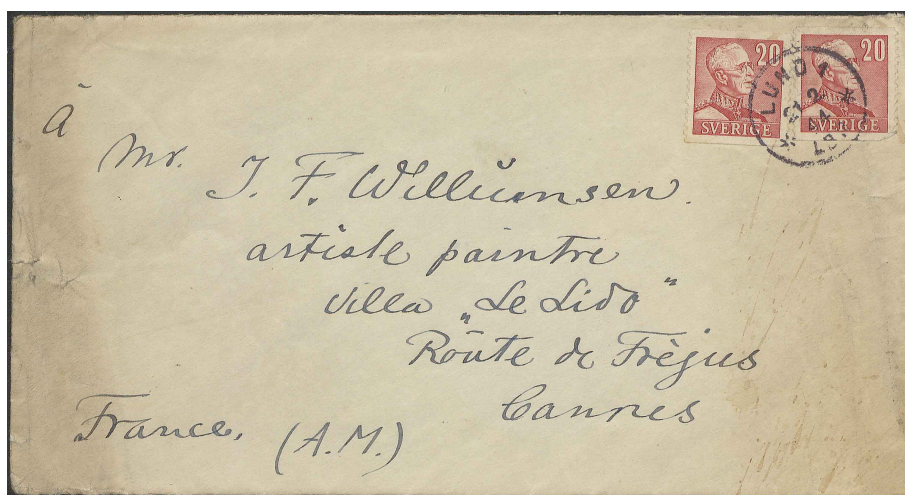 20 20
SVERIGE SVERIGE
LUND 1
21 2
44
À
Mr. J. F. Willumsen.
artiste paintre
Villa „Le Lido"
Route de Fréjus
Cannes
France. (A.M.)